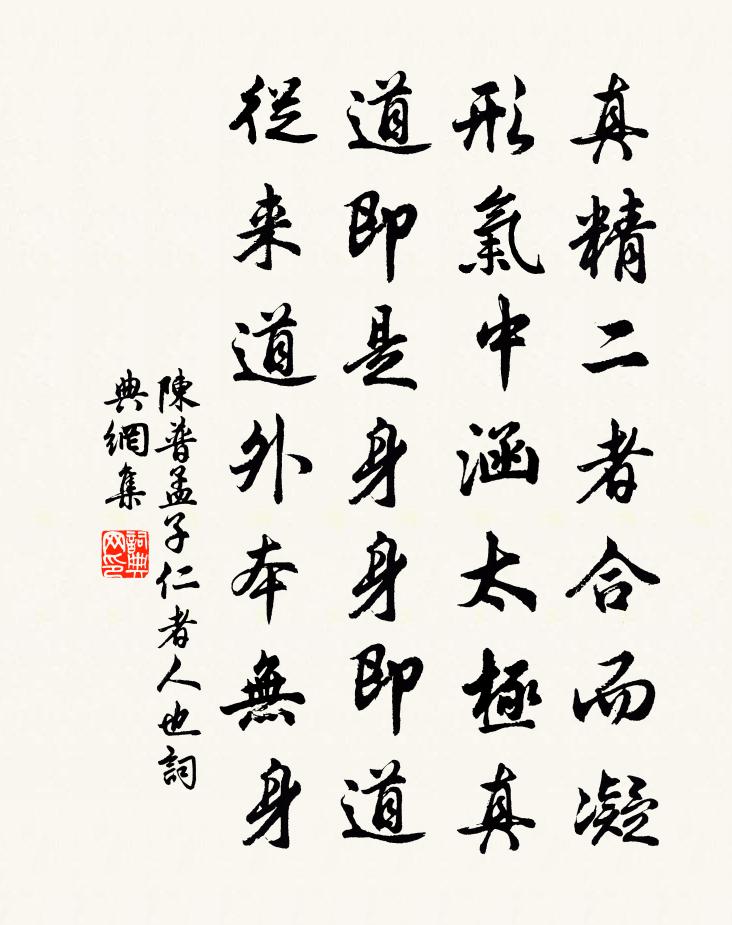 真精二者合而凝
形氣中涵太極真
道即是身身即道
従来道外本無身
陳普孟子仁者人也詞
典網集
詞典
网印